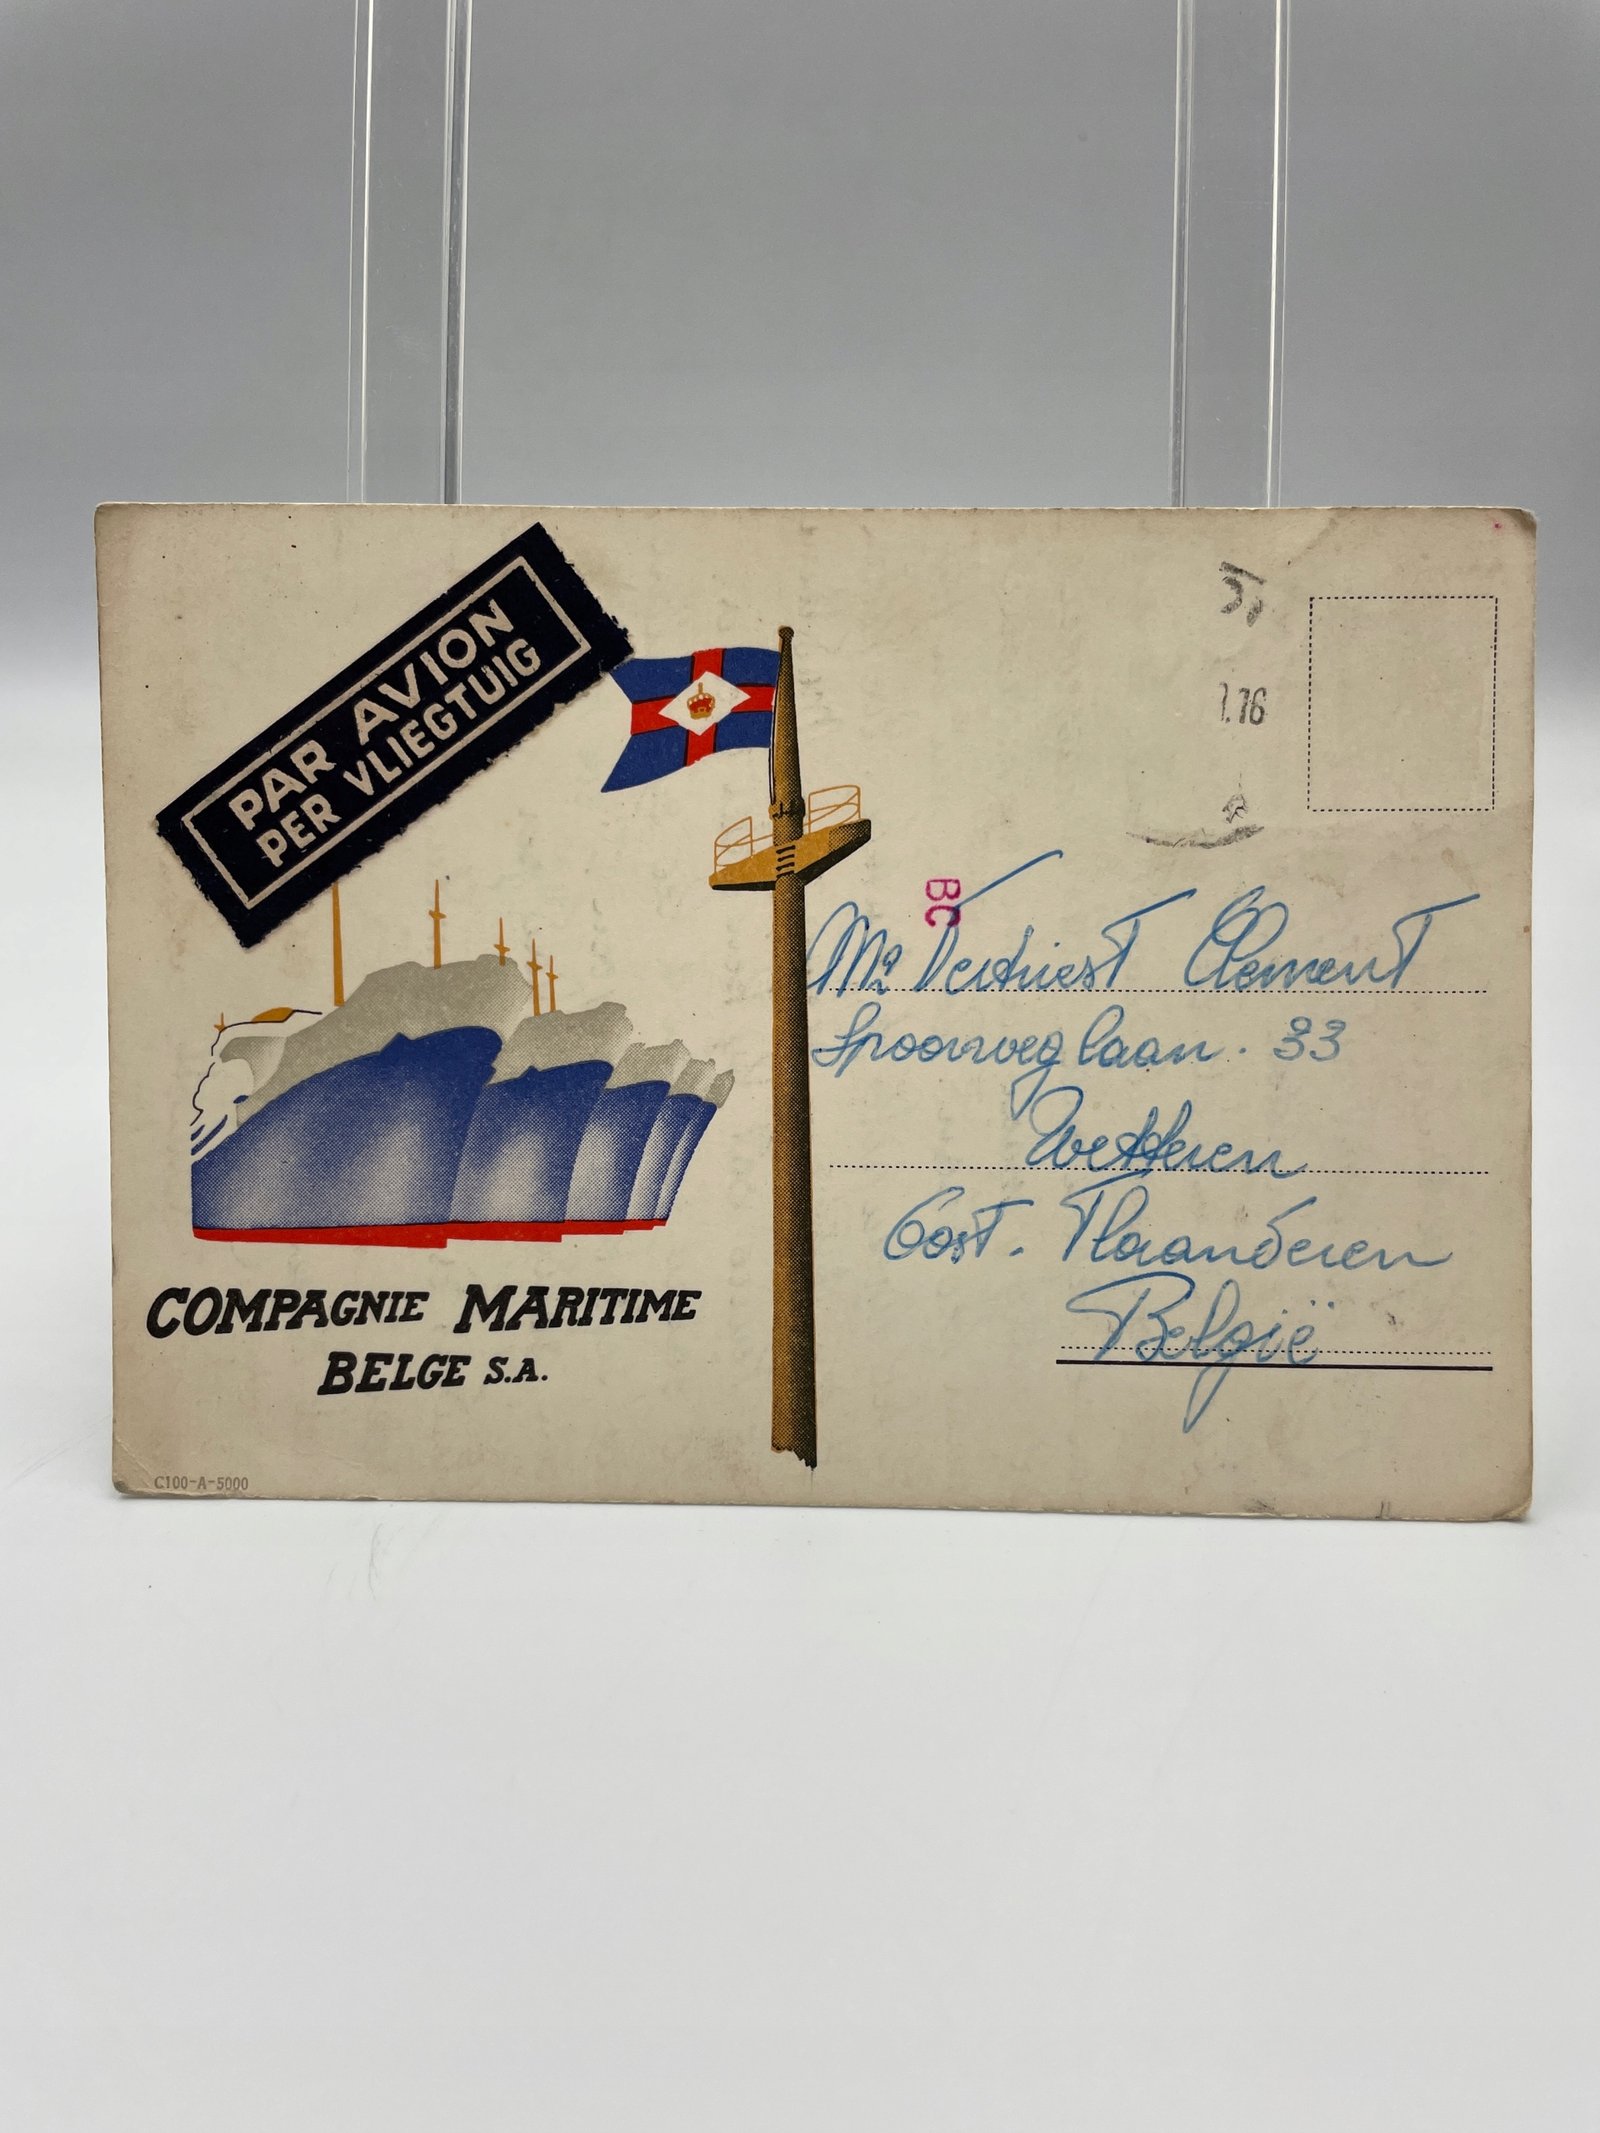 PAR AVION
PER VLIEGTUIG
COMPAGNIE MARITIME
BELGE S.A.
C100-A-5000
.16
BC
Mr Verhiest Clement
Spoorweglaan. 33
Wetteren
Oost. Vlaanderen
België